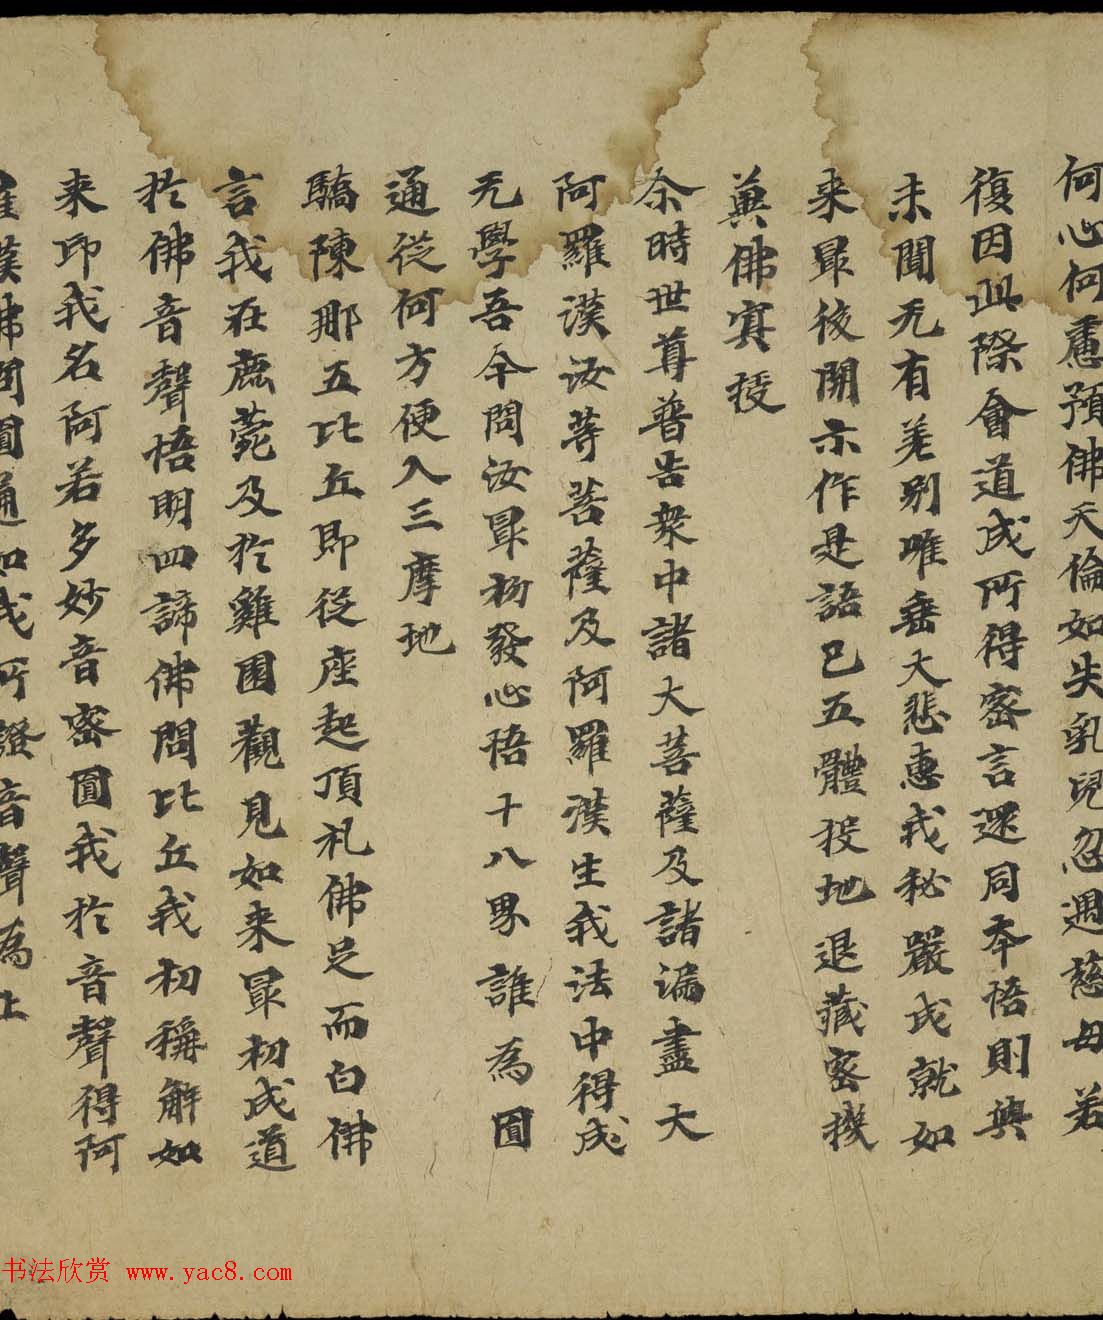 何心何慮預佛天倫如失乳兒忽遇慈母若
復因此際會道成所得密言還同本悟則與
未聞无有差別唯垂大悲惠我秘嚴成就如
来最後開示作是語已五體投地退藏密機
兾佛冥授
尒時世尊普告衆中諸大菩薩及諸漏盡大
阿羅漢汝等菩薩及阿羅漢生我法中得成
无學吾今問汝最初發心悟十八界誰為圓
通從何方便入三摩地
驕陳那五比丘即從座起頂礼佛足而白佛
言我在鹿菀及於雞園觀見如来最初成道
於佛音聲悟明四諦佛問比丘我初稱解如
来印我名阿若多妙音密圓我於音聲得阿
羅漢佛問圓通如我所證音聲為上
书法欣赏 www.yac8.com